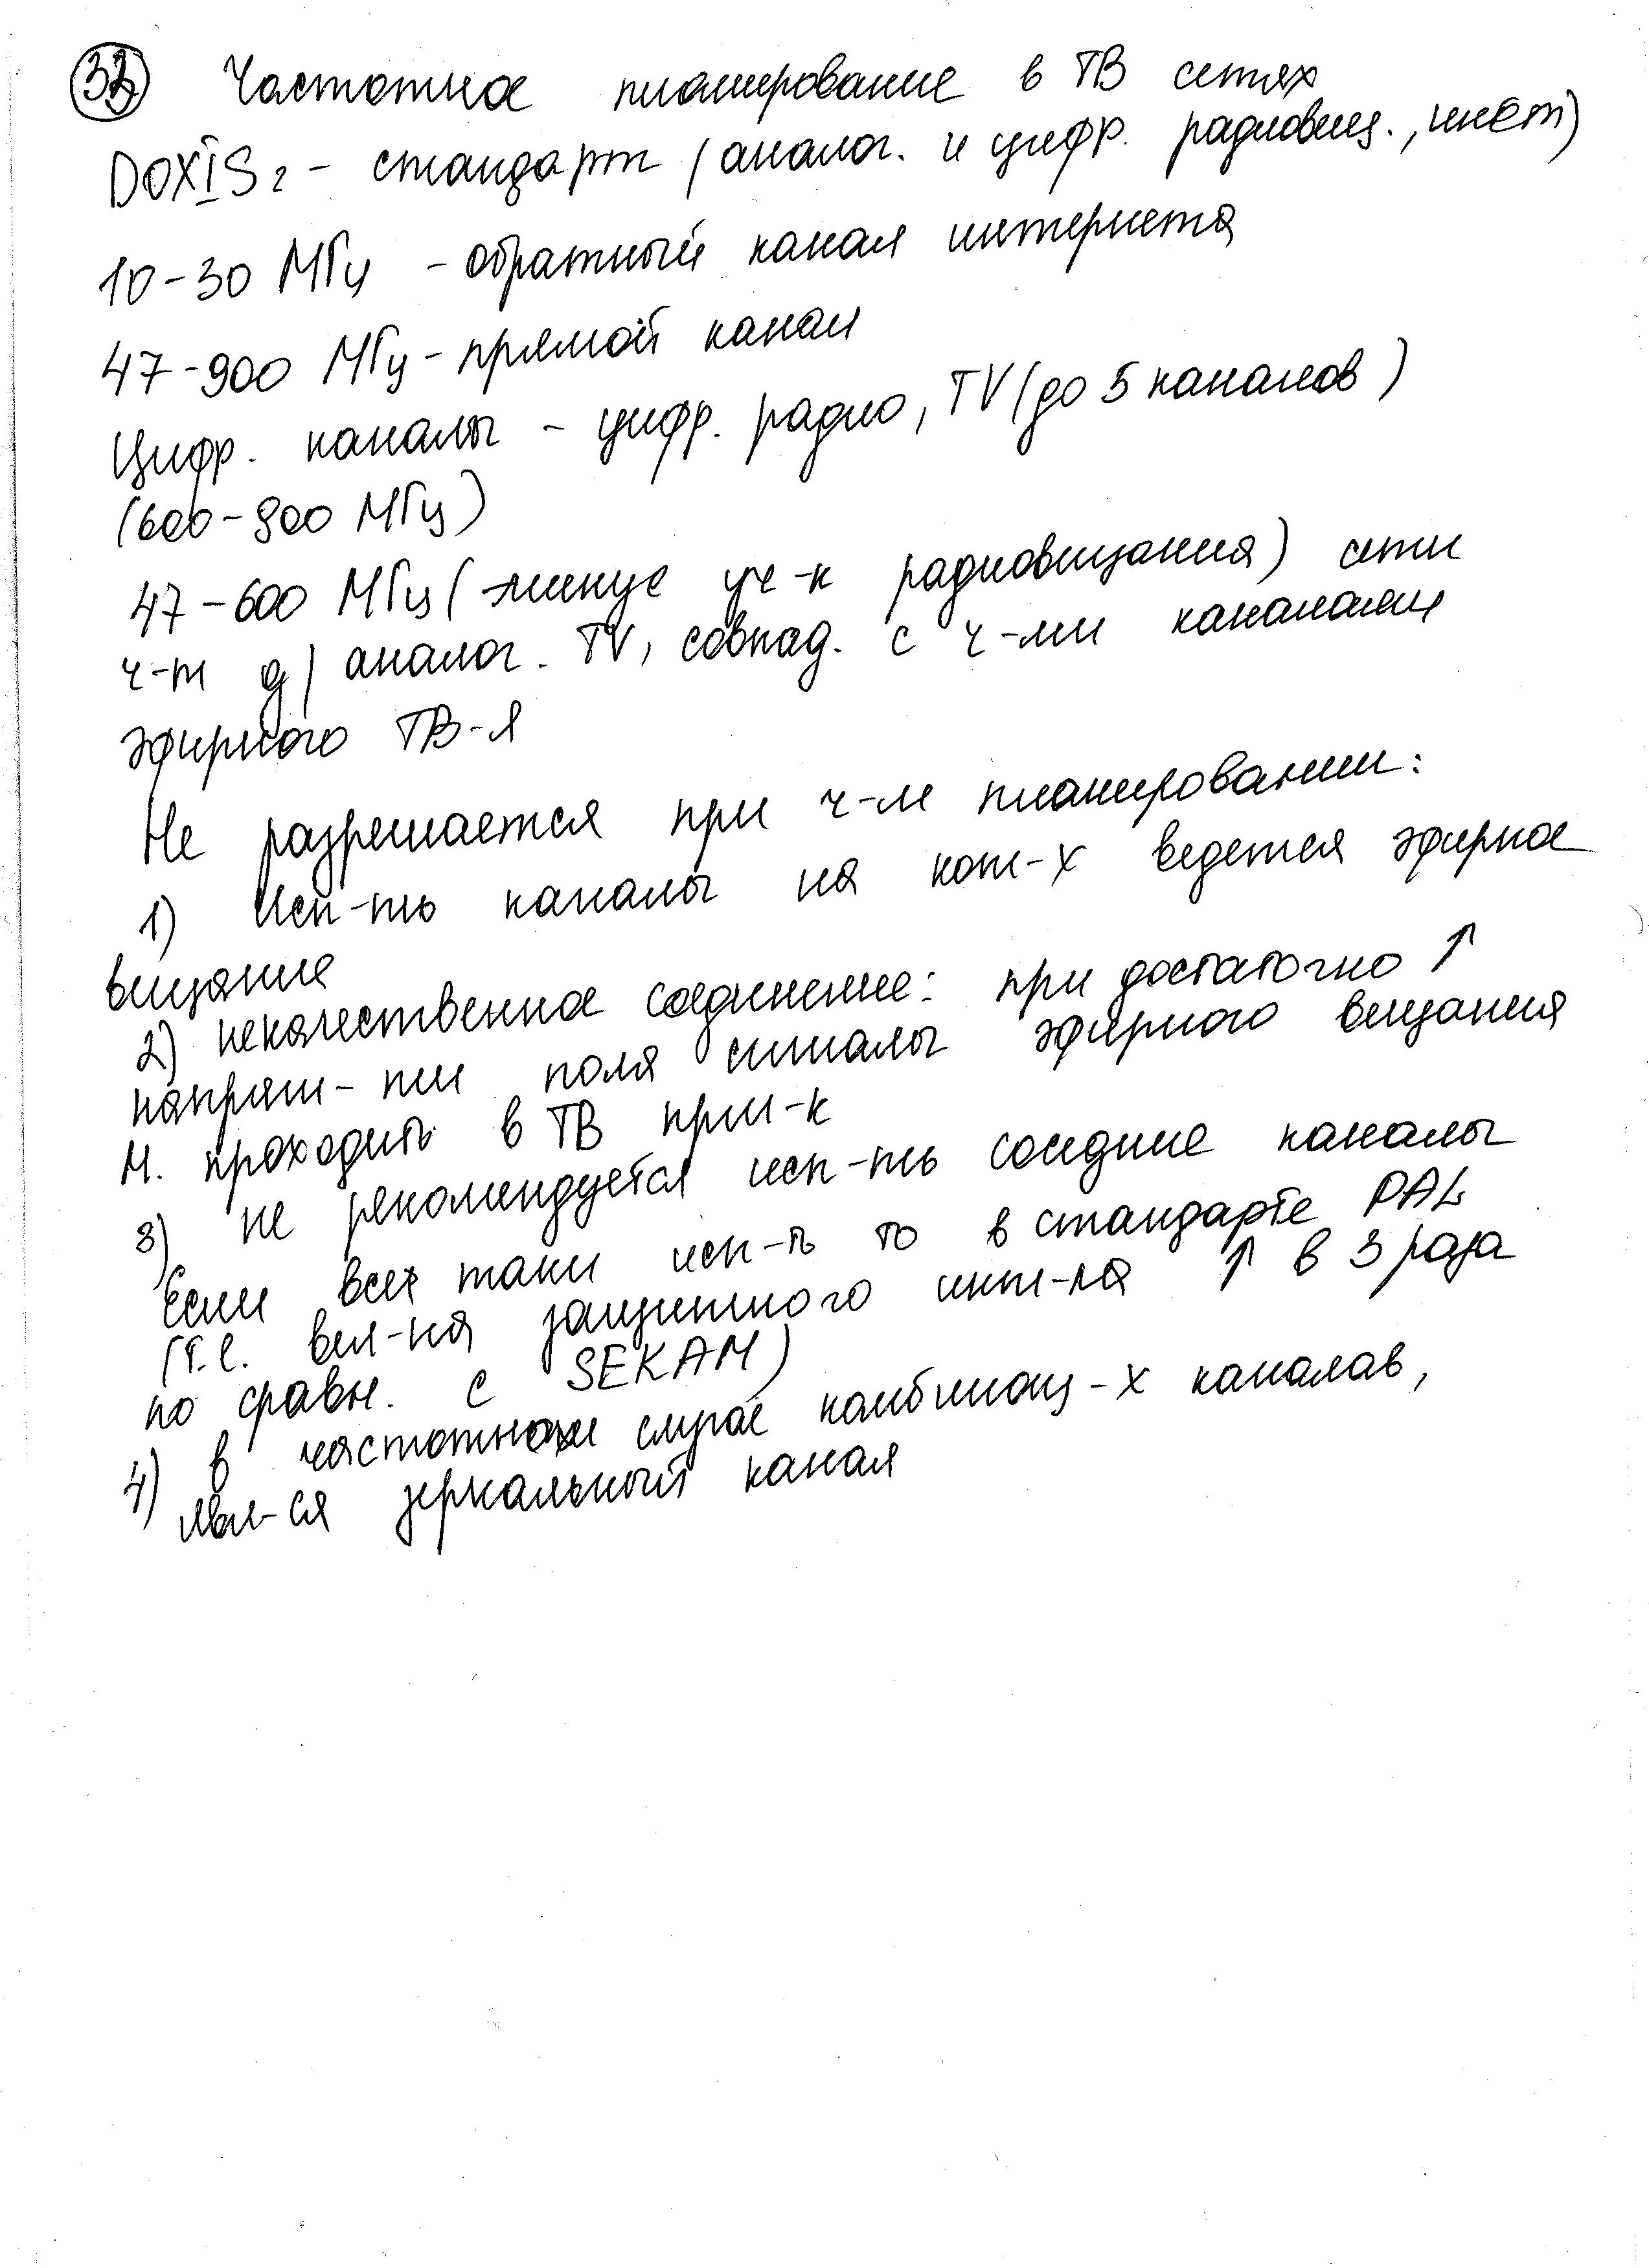 32 Частотное планирование в ТВ сетях
DOXIS2 - стандарт (аналог. и цифр. радиовещ., инет)
10-30 МГц - обратный канал интернета
47-900 МГц - прямой канал
Цифр. каналы - цифр. радио, TV (до 5 каналов)
(600-800 МГц)
47-600 МГц (-минус уч-к радиовещания) сети
ч-т д/ аналог. TV, совпад. с ч-ми каналами
эфирного ТВ-я
Не разрешается при ч-м планировании:
1) Исп-ть каналы на кот-х ведется эфирное
вещание
2) некачественное соединение: при достаточно ↑
напряж-ти поля сигналы эфирного вещания
м. проходить в ТВ прм-к
3) не рекомендуется исп-ть соседние каналы
Если всех таки исп-ть то в стандарте PAL
(т.е. вел-на защитного инт-ла ↑ в 3 раза
по сравн. с SEKAM)
4) в частотном случае комбинац-х каналов,
явл-ся зеркальный канал